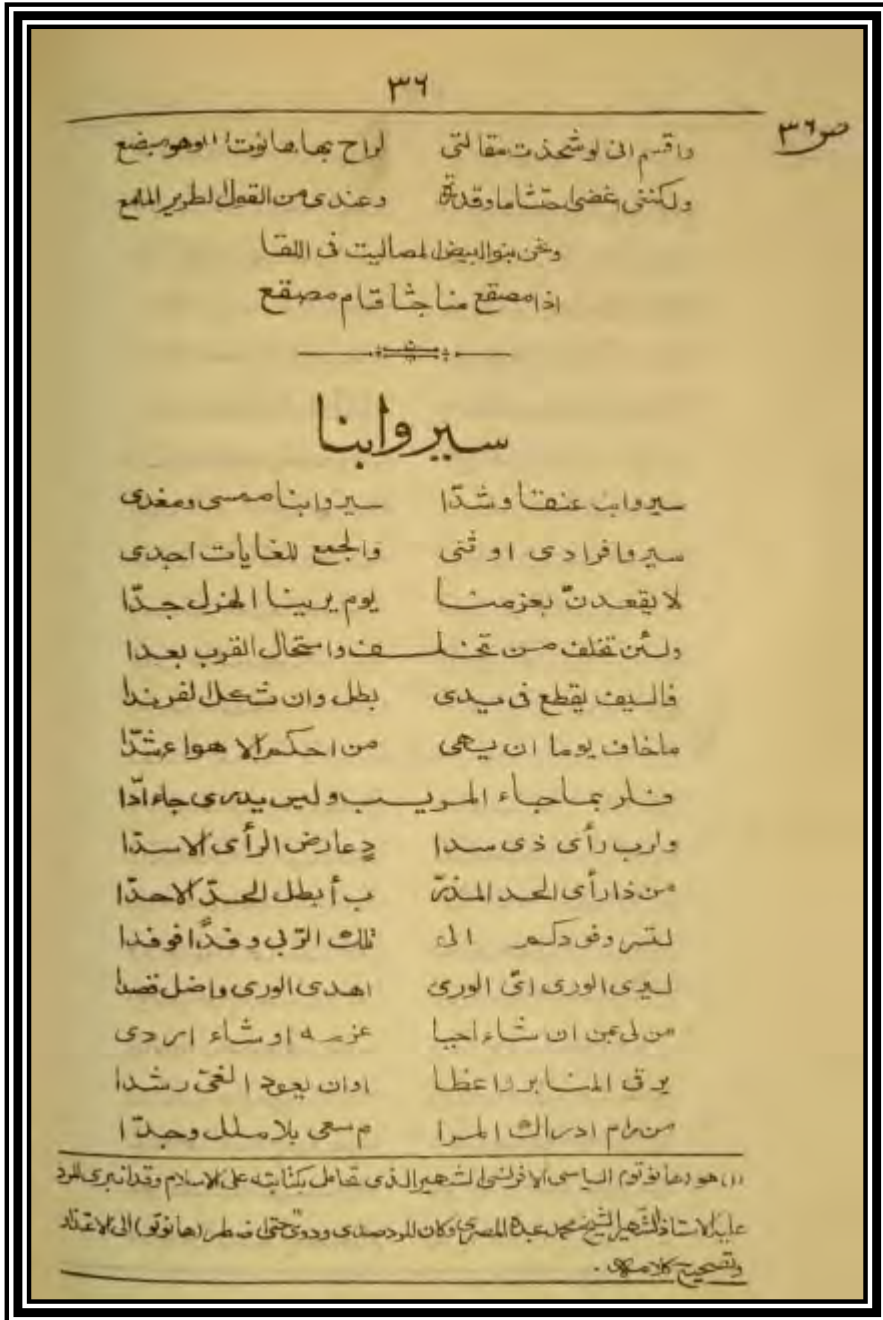 ٣٦
ص ٣٦
واقسم انى لو شحذت مقالتى لراح بها هانوت(١) وهو مبضع
ولكننى اغضى احتشاما وقدرة وعندى من القول الطرير الملمع
ونحن بنو البيض المصاليت فى اللقا
اذا مصقع منا جثا قام مصقع
سيروا بنا
سيروا بنا عنقا وشدّا سيروا بنا ممسى ومغدى
سيروا فرادى او ثنى والجمع للغايات اجدى
لا يقعدنّ بعزمنا يوم يرينا الهزل جدّا
ولئن تخلف من تخلـف واستحال القرب بعدا
فالسيف يقطع فى يدى بطل وان ثكل الفرندا
ماخاف يوما ان يهى من احكم الاهوا عشدّا
فلربما جاء المريـب وليس يدرى جاء ادّا
ولرب رأى ذى سدا دٍ عارض الرأى الاسدّا
من ذا رأى الحد المذرّ ب أبطل الحدّ الاحدّا
لتسر وفودكم الى تلك الرّبى وفدًا فوفدا
ليرى الورى انّ الورى اهدى الورى واضل قصدا
من لى بمن ان شاء احيا عزمه او شاء اردى
يرقى المنابر واعظا اوان يعود الغىّ رشدا
من رام ادراك المرا م سعى بلا ملل وجدّا
(١) هو (هانوتو) السياسى الافرنسى الشهير الذى تحامل بكتابته على الاسلام وقد انبرى للرد
عليه الاستاذ الشهير الشيخ محمد عبده المصرى وكان للرد صدى ودوىّ حتى اضطر (هانوتو) الى الاعتذار
وتصحيح كلامه .